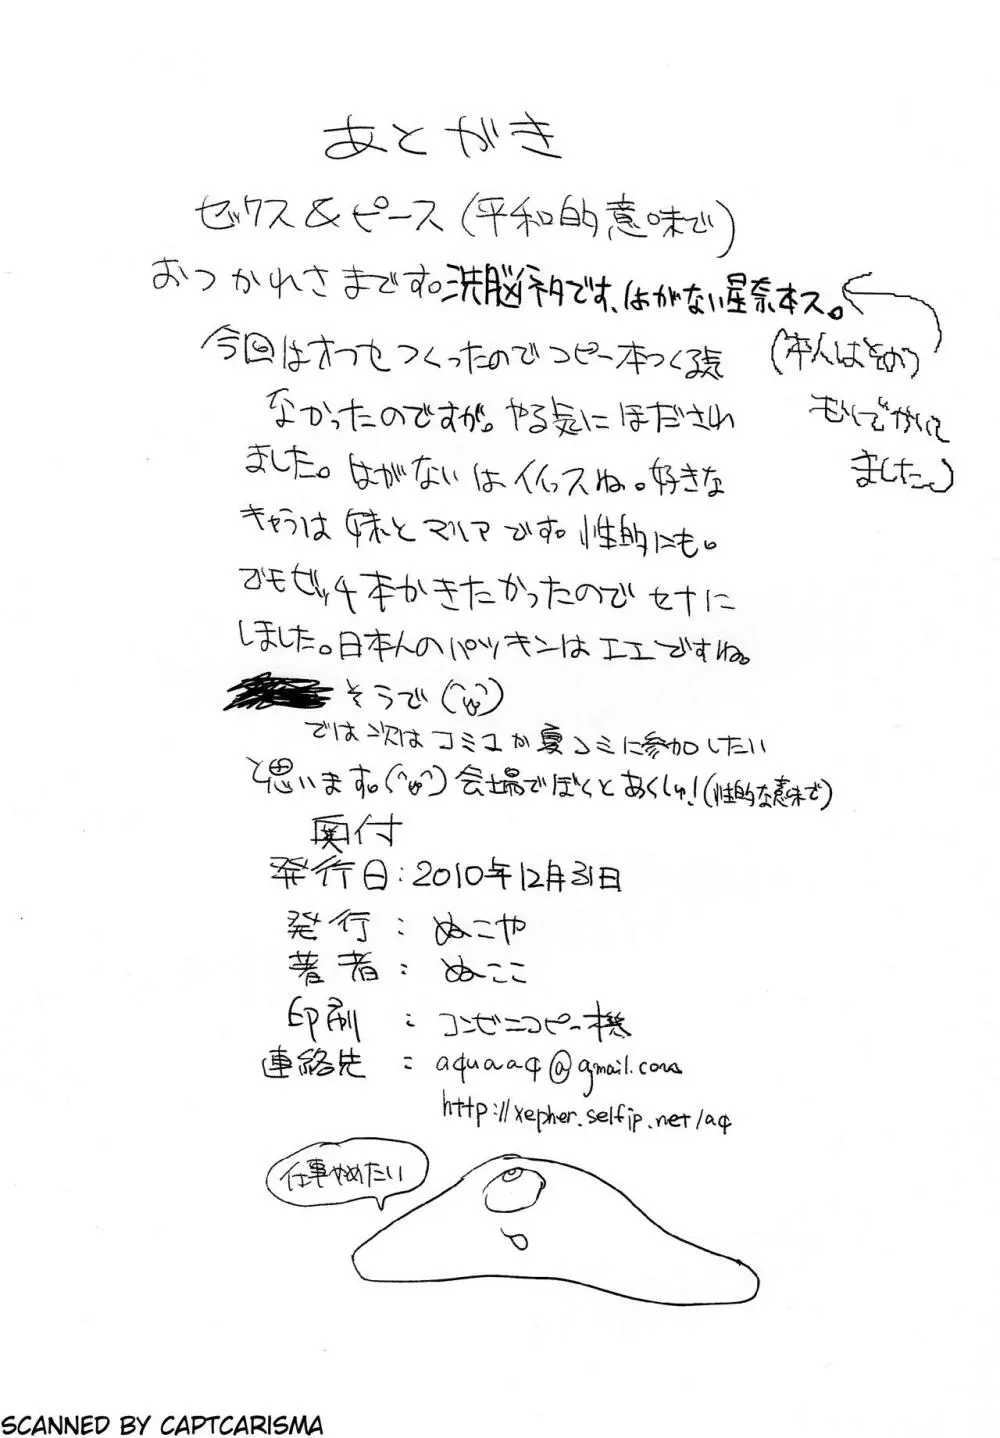 あとがき
セックス&ピース(平和的意味で)
おつかれさまです。洗脳ネタです、はがない星奈本ス。
(本人はそのつもりでかいてました。)
今回はオフセつくったのでコピー本つくる気
なかったのですが。やる気にほだされ
ました。はがないはイイっスね。好きな
キャラは妹とマリアです。性的にも。
でも
本かきたかったのでセナに
しました。日本人のパツキンはエエですね。
そうで(^ω^)
では次はコミ1か夏コミに参加したい
と思います。(^ω^)会場でぼくとあくしゅ!(性的な意味で)
奥付
発行日:2010年12月31日
発行:ぬこや
著者:ぬここ
印刷:コンビニコピー機
連絡先:aquaaq@gmail.com
http://xepher.selfip.net/aq
仕事やめたい
SCANNED BY CAPTCARISMA